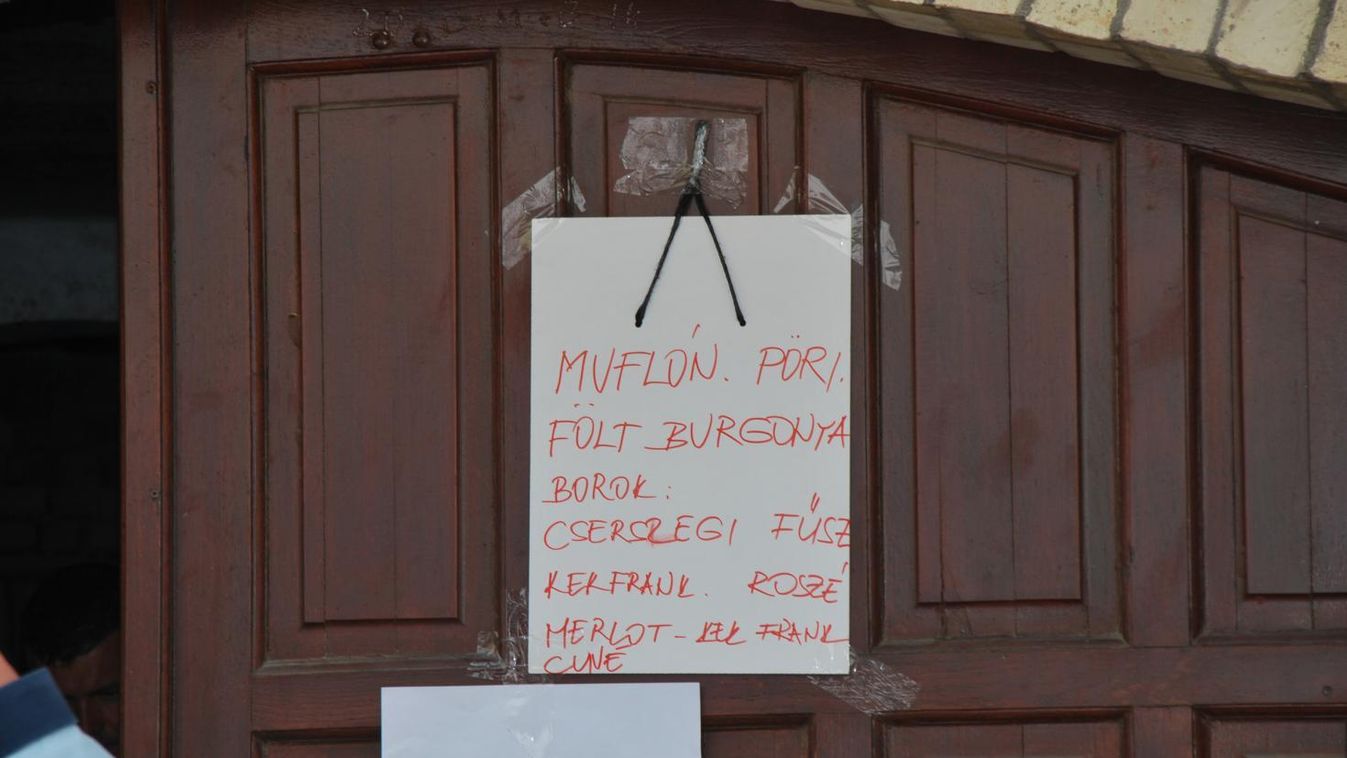 MUFLÓN. PÖRI.
FÖLT BURGONYA
BOROK:
CSERSZEGI FŰSZ
KEKFRANK. ROSZÉ
MERLOT - KEK FRANK
CUVÉ